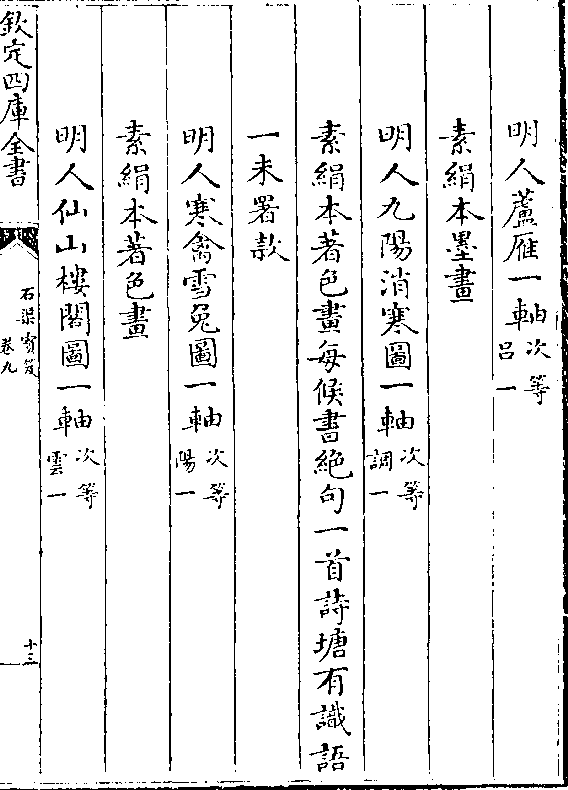 明人蘆雁一軸次等呂一
素絹本墨畫
明人九陽消寒圖一軸次等調一
素絹本著色畫每候書絶句一首詩塘有識語
一未署款
明人寒禽雪兔圖一軸次等陽一
素絹本著色畫
明人仙山樓閣圖一軸次等雲一
欽定四庫全書
石渠寳笈
卷九
十三